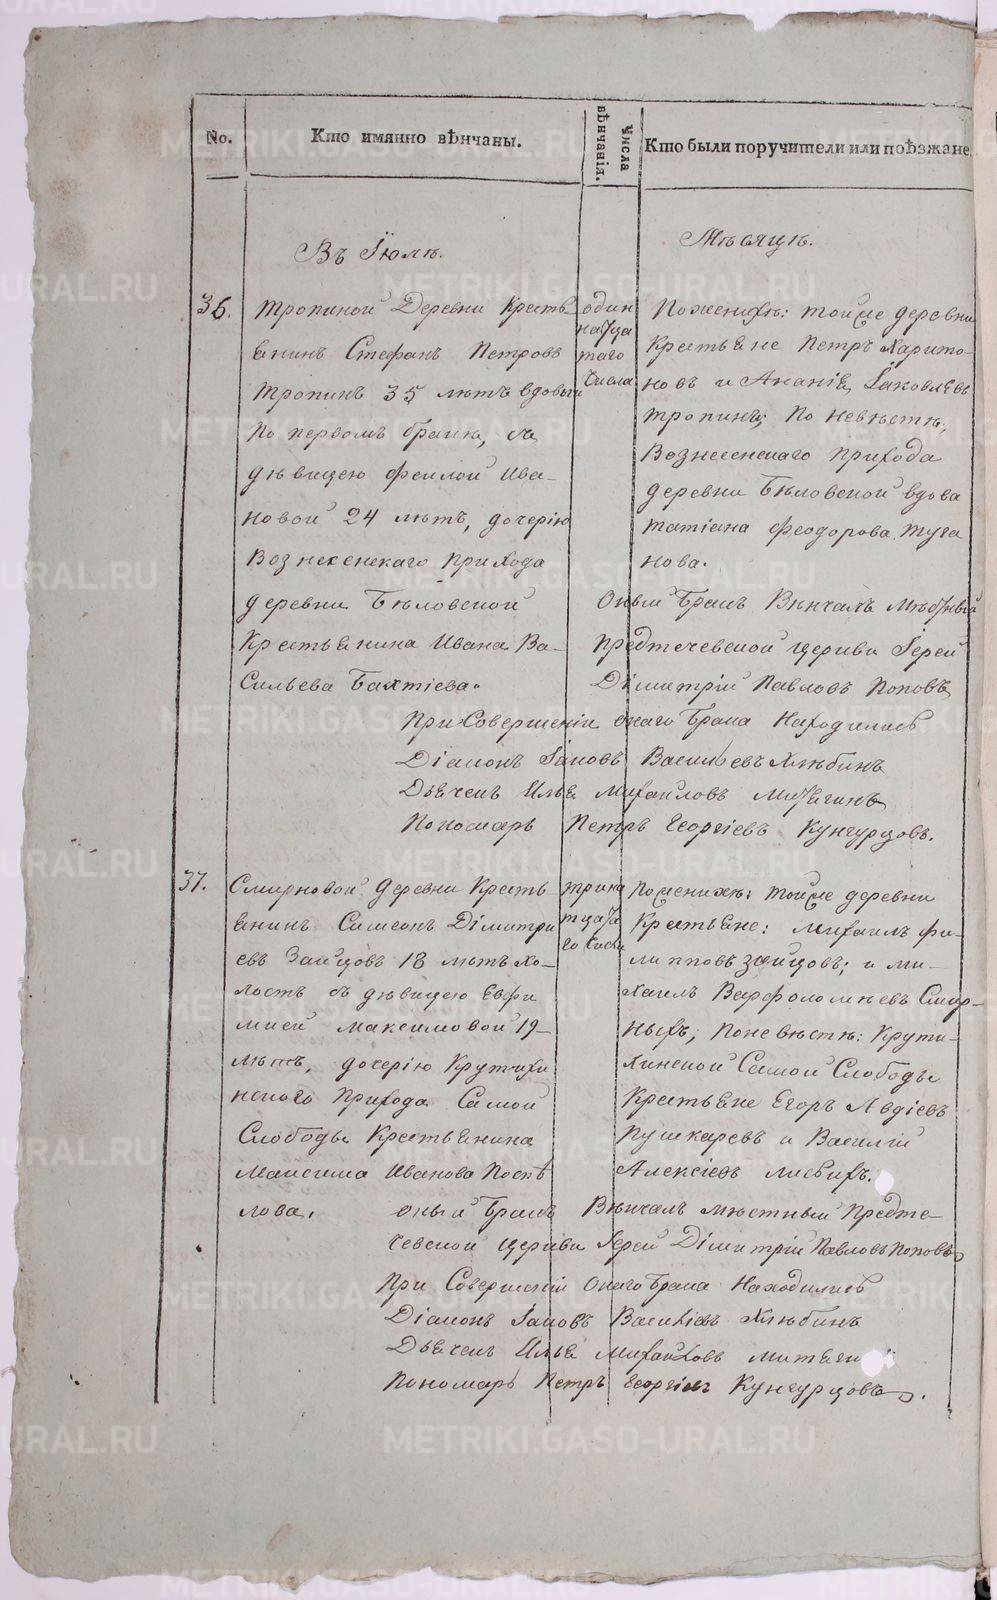 No.
Кто имянно вѣнчаны.
Числа вѣнчанія.
Кто были поручители или поѣзжане.
Въ Іюлѣ.
Мѣсяцѣ.
36.
Тропиной Деревни Кресть
янинъ Стефанъ Петровъ
Тропинъ 35 лѣтъ вдовый
По первомъ бракѣ, съ
дѣвицею Феклой Ива-
новой 24 лѣтъ, дочерію
Вознесенскаго Прихода
деревни Бѣловской
Крестьянина Ивана Ва-
Сильева Бахтіева.
один
надца
таго
Числа
По женихѣ: тойже деревни
Крестьяне Петръ Харито-
новъ и Ананія Іаковлевъ
Тропины; По невѣстѣ:
Вознесенскаго Прихода
деревни Бѣловской вдова
Татіана Феодорова Туга
нова.
Оный Бракъ Вѣнчалъ Мѣстный
Предтечевской Церкви Іерей
Дімитрій Павловъ Поповъ
При Совершеніи онаго Брака Находились
Діаконъ Іаковъ Васильевъ Хлѣбинъ
Дьячекъ Илья Михайловъ Митягинъ
Пономарь Петръ Георгіевъ Кунгурцовъ.
37.
Смирновой деревни Кресть
янинъ Самсонъ Дімитрі
евъ Зайцовъ 18 лѣтъ Хо-
лостъ съ дѣвицею Евфи
міей Максимовой 19
лѣтъ, дочерію Крутихи
нскаго Прихода Самой
Слободы Крестьянина
Максима Иванова Поспѣ
лова.
трина
тцата
го Числа
По женихѣ: тойже деревни
Крестьяне: Михаилъ Фи-
липповъ Зайцовъ; и Ми-
хаилъ Варфоломѣевъ Смир-
ныхъ; По невѣстѣ: Крути-
хинской Самой Слободы
Крестьяне Егоръ Авдіевъ
Пушкаревъ и Василій
Алексіевъ Лисьихъ.
Оный Бракъ Вѣнчалъ мѣстный Предте-
чевской Церкви Іерей Дімитрій Павловъ Поповъ
При Совершеніи онаго Брака Находились
Діаконъ Іаковъ Васильевъ Хлѣбинъ
Дьячекъ Илья Михайловъ Митягинъ
Пономарь Петръ Георгіевъ Кунгурцовъ.
METRIKI.GASO-URAL.RU